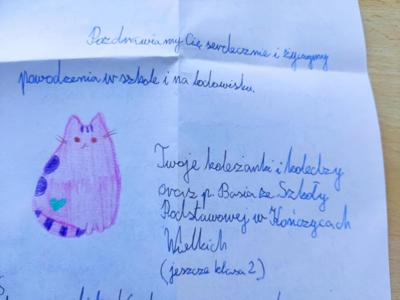 Pozdrawiamy Cię serdecznie i życzymy
powodzenia w szkole i na lodowisku.
Twoje koleżanki i koledzy
oraz p. Basia ze Szkoły
Podstawowej w Kończycach
Wielkich
(jeszcze klasa 2)